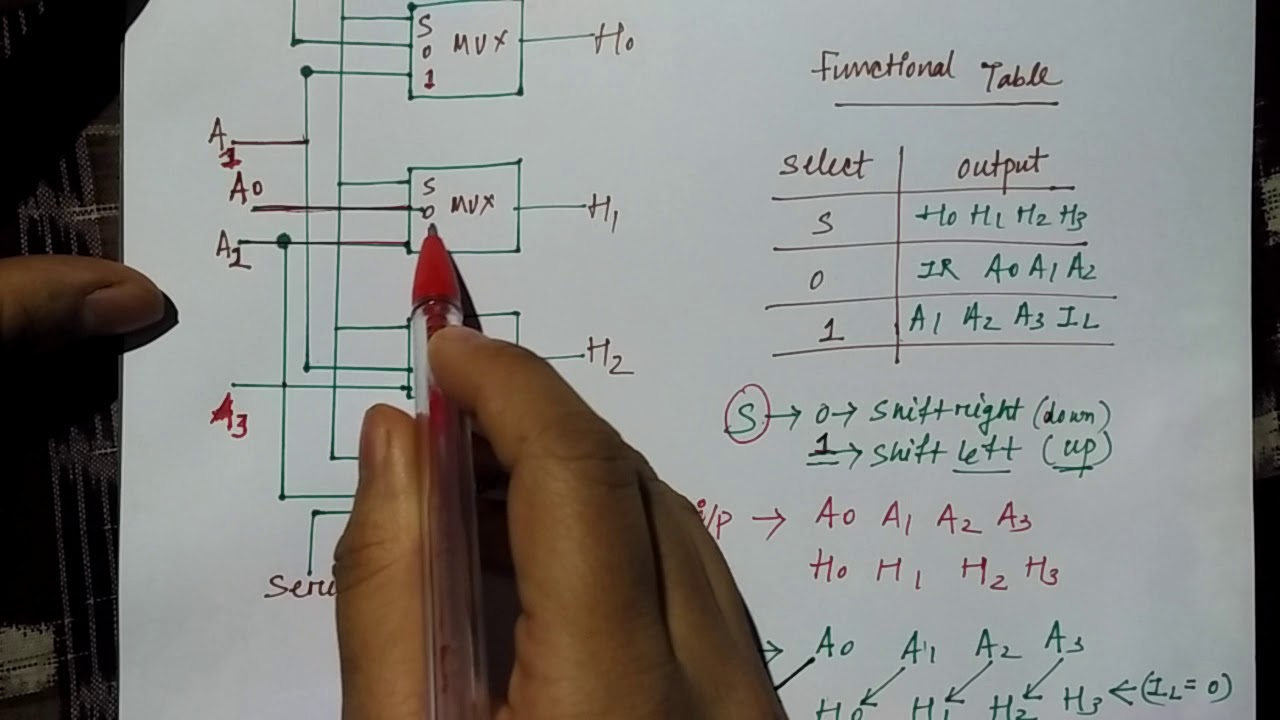 S
0 MUX H0
1
A1
A0
S
0 MUX H1
A2
H2
A3
Functional Table
Select output
S H0 H1 H2 H3
0 IR A0 A1 A2
1 A1 A2 A3 IL
S → 0 → Shift right (down)
1 → shift left (up)
i/p → A0 A1 A2 A3
H0 H1 H2 H3
A0 A1 A2 A3
H0 H1 H2 H3 ← (IL = 0)